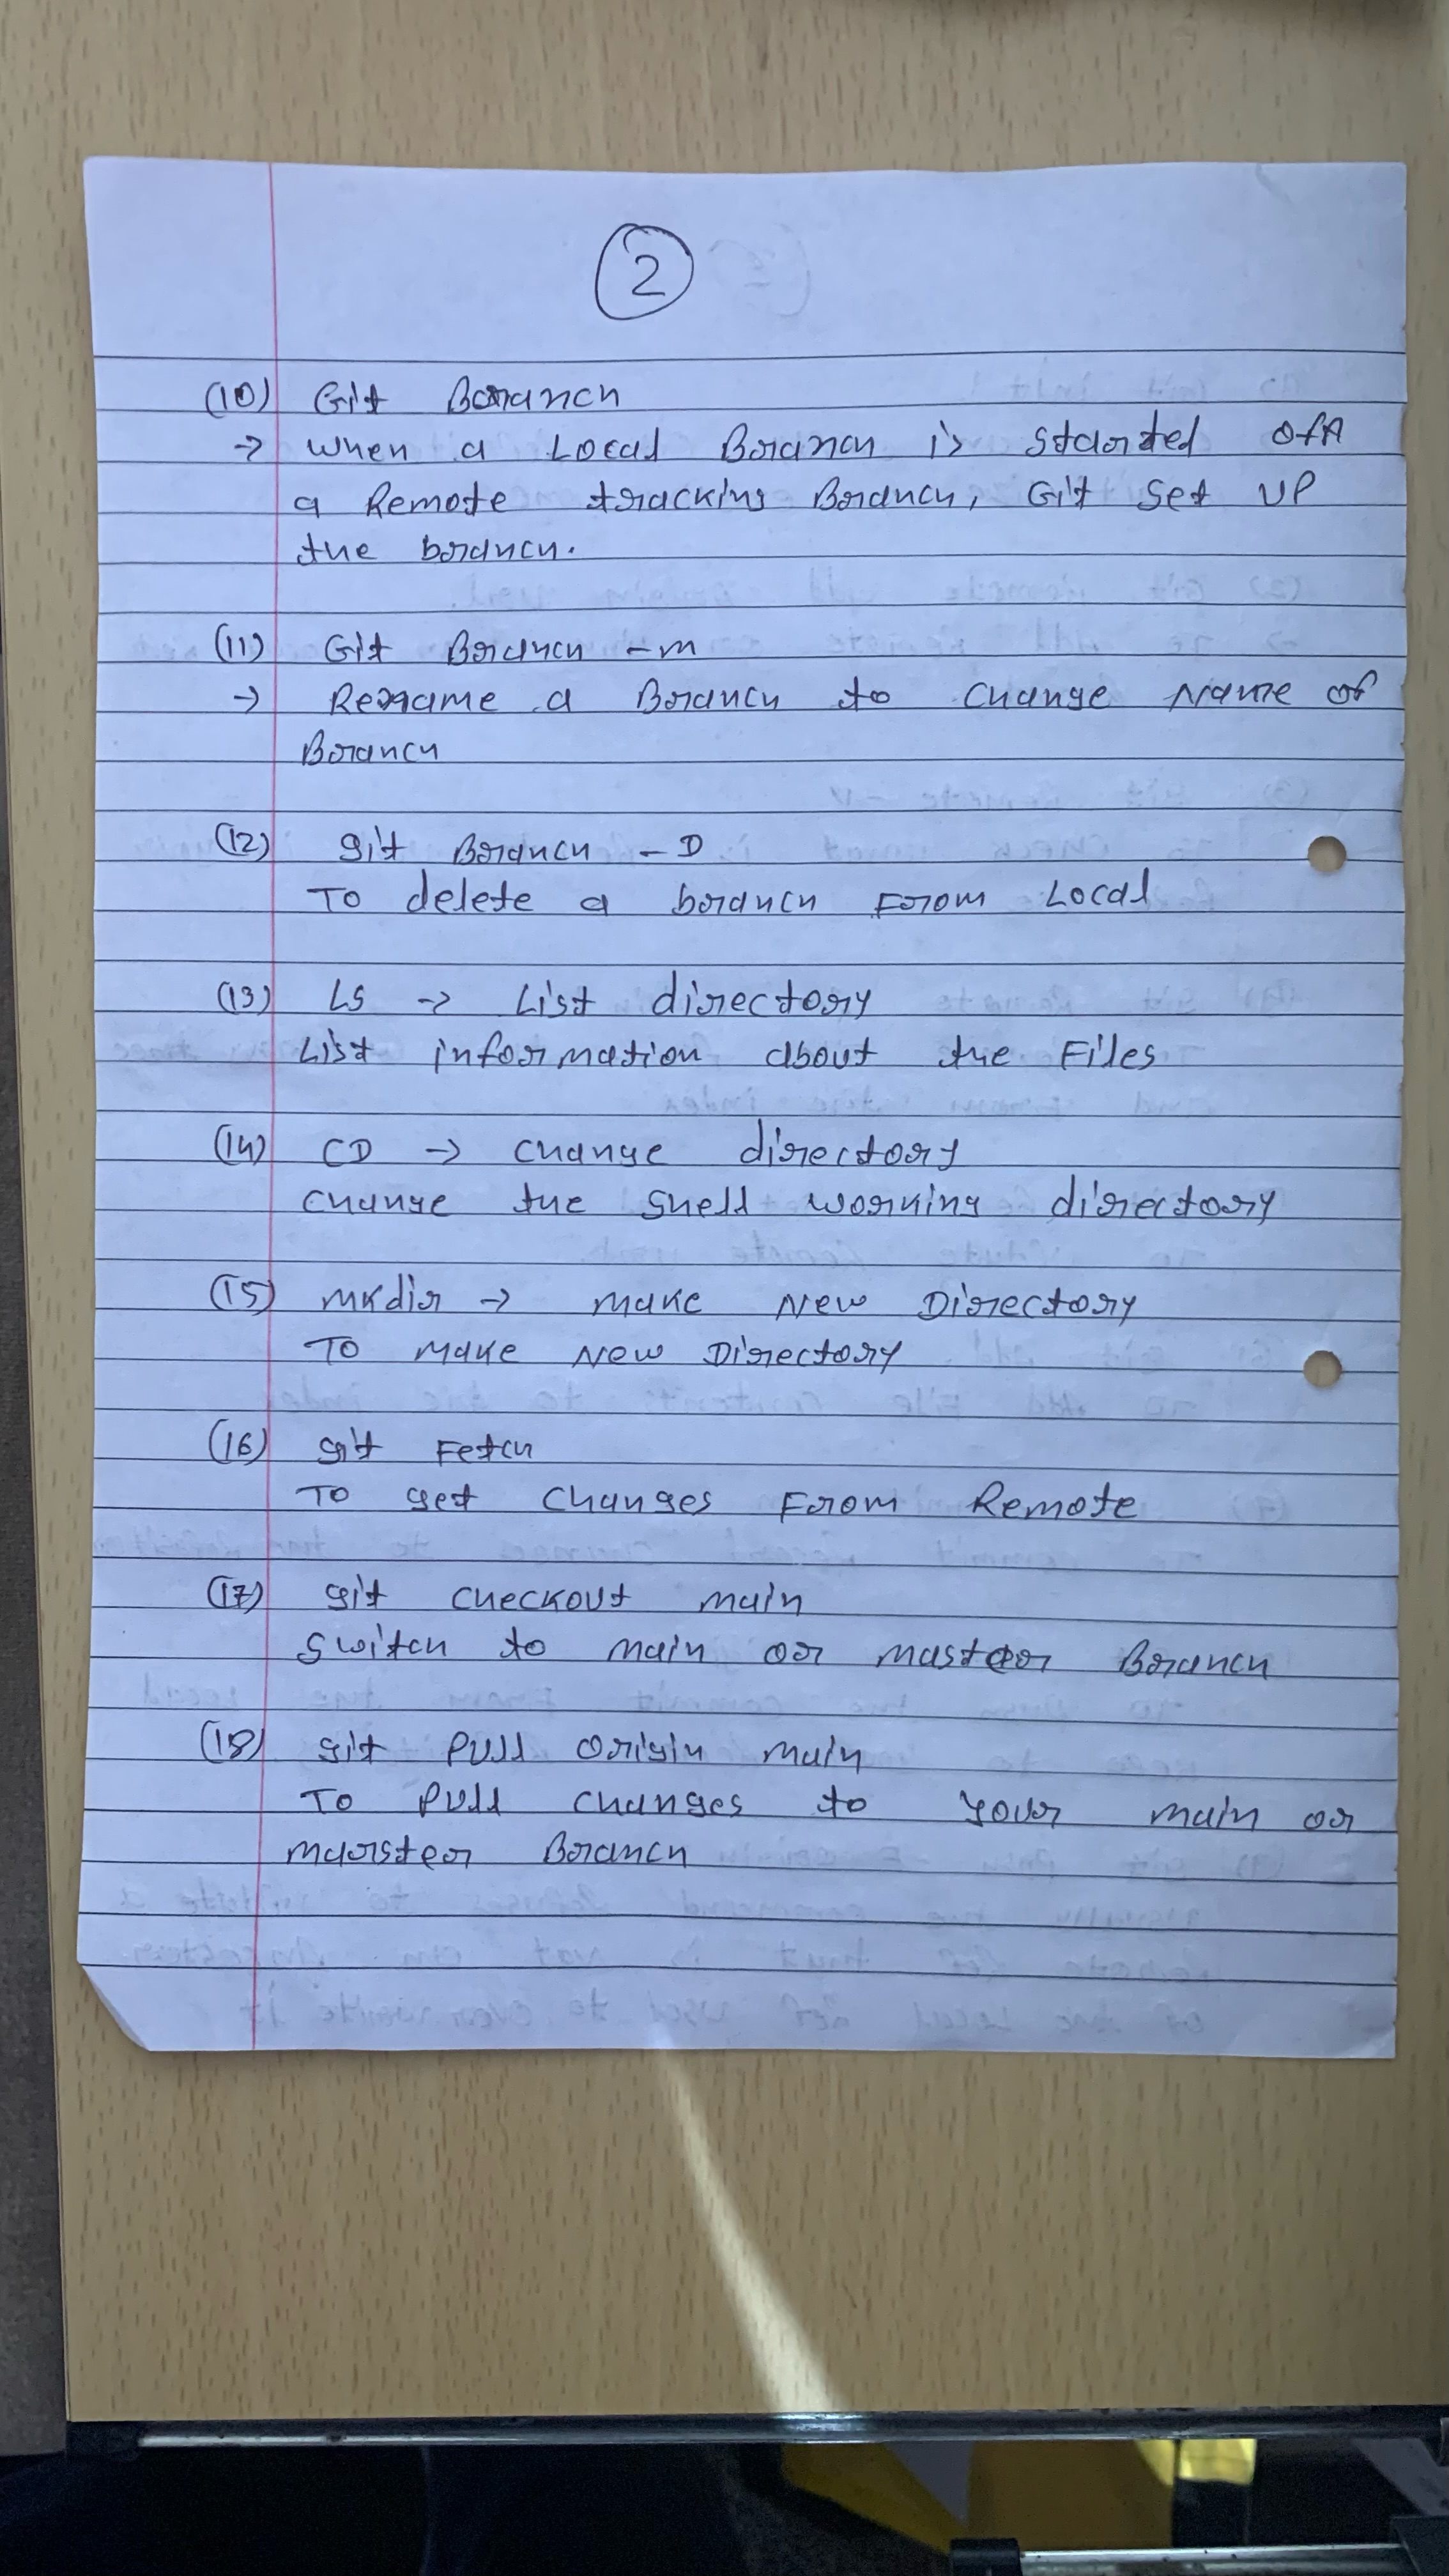 2
(10) Git Branch
→ When a Local Branch is started ofA
a Remote tracking Branch, Git Set UP
the branch.
(11) Git Branch -m
→ Rename a Branch to Change Name of
Branch
(12) git Branch - D
To delete a branch From Local
(13) LS → List directory
List information about the Files
(14) CD → change directory
change the shell working directory
(15) mkdir → make New Directory
To make New Directory
(16) git Fetch
To get Changes From Remote
(17) git checkout main
Switch to main or master Branch
(18) git Pull origin main
To Pull changes to your main or
marster Branch